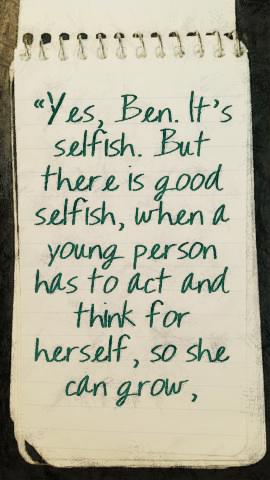 “Yes, Ben. It's
selfish. But
there is good
selfish, when a
young person
has to act and
think for
herself, so she
can grow,